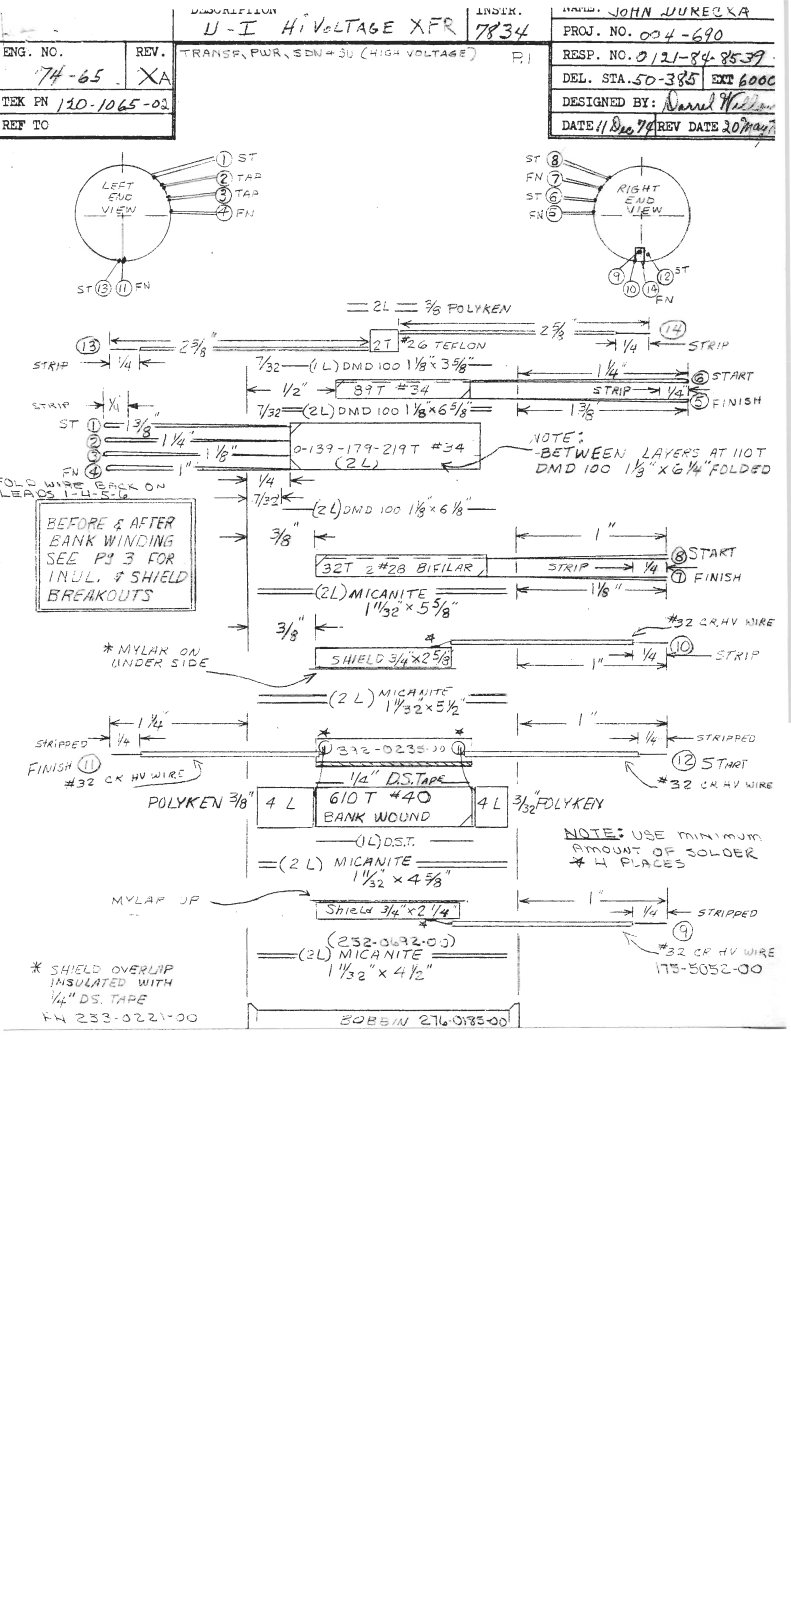 DESCRIPTION
U-I Hi VOLTAGE XFR
INSTR.
7834
NAME: JOHN DURECKA
PROJ. NO. 004-690
RESP. NO. 0121-84-8539
DEL. STA. 50-385 EXT 6000
DESIGNED BY: Darrel
DATE 11 Dec 74 REV DATE 20 May
ENG. NO.
74-65
REV.
XA
TEK PN 120-1065-02
REF TO
TRANSF, PWR, SDN #30 (HIGH VOLTAGE) P.1
LEFT
END
VIEW
1 ST
2 TAP
3 TAP
4 FN
ST 13 11 FN
ST 8
FN 7
ST 6
FN 5
RIGHT
END
VIEW
9 12 ST
10 14
FN
2L 3/8 POLYKEN
13 2 3/8" 2T #26 TEFLON 14
STRIP 1/4 1/4 STRIP
7/32 (1L) DMD 100 1 1/8" x 3 5/8"
1/2" 89T #34 1 1/4" 6 START
STRIP 1/4" 5 FINISH
7/32 (2L) DMD 100 1 1/8" x 6 5/8" 1 3/8"
STRIP
ST 1 1 3/8"
2 1 1/4"
3 1 1/8"
FN 4 1"
0-139-179-219T #34
(2L)
NOTE:
-BETWEEN LAYERS AT 110T
DMD 100 1 1/8" x 6 1/4" FOLDED
FOLD WIRE BACK ON
LEADS 1-4-5-6
1/4
7/32
(2L) DMD 100 1 1/8" x 6 1/8"
BEFORE & AFTER
BANK WINDING
SEE Pg 3 FOR
INUL. & SHIELD
BREAKOUTS
3/8" 1"
32T 2 #28 BIFILAR STRIP 1/4 8 START
7 FINISH
(2L) MICANITE 1 1/8"
1 11/32" x 5 5/8"
3/8"
#32 CR. HV WIRE
10
* MYLAR ON
UNDER SIDE
* SHIELD 3/4" x 2 5/8" 1" 1/4 STRIP
(2L) MICANITE
1 11/32" x 5 1/2"
1 1/4" 1"
STRIPPED 1/4 1/4 STRIPPED
FINISH 11 392-0235-00 12 START
#32 CR HV WIRE #32 CR HV WIRE
1/4" D.S. TAPE
POLYKEN 3/8" 4 L 610 T #40 4 L 3/32" POLYKEN
BANK WOUND
(1L) D.S.T.
NOTE: USE MINIMUM
AMOUNT OF SOLDER
* 4 PLACES
(2L) MICANITE
1 11/32" x 4 5/8"
MYLAR UP
Shield 3/4" x 2 1/4" 1" 1/4 STRIPPED
9
(252-0692-00)
#32 CR HV WIRE
175-5052-00
(2L) MICANITE
1 11/32" x 4 1/2"
* SHIELD OVERLAP
INSULATED WITH
1/4" DS. TAPE
253-0221-00
BOBBIN 276-0185-00